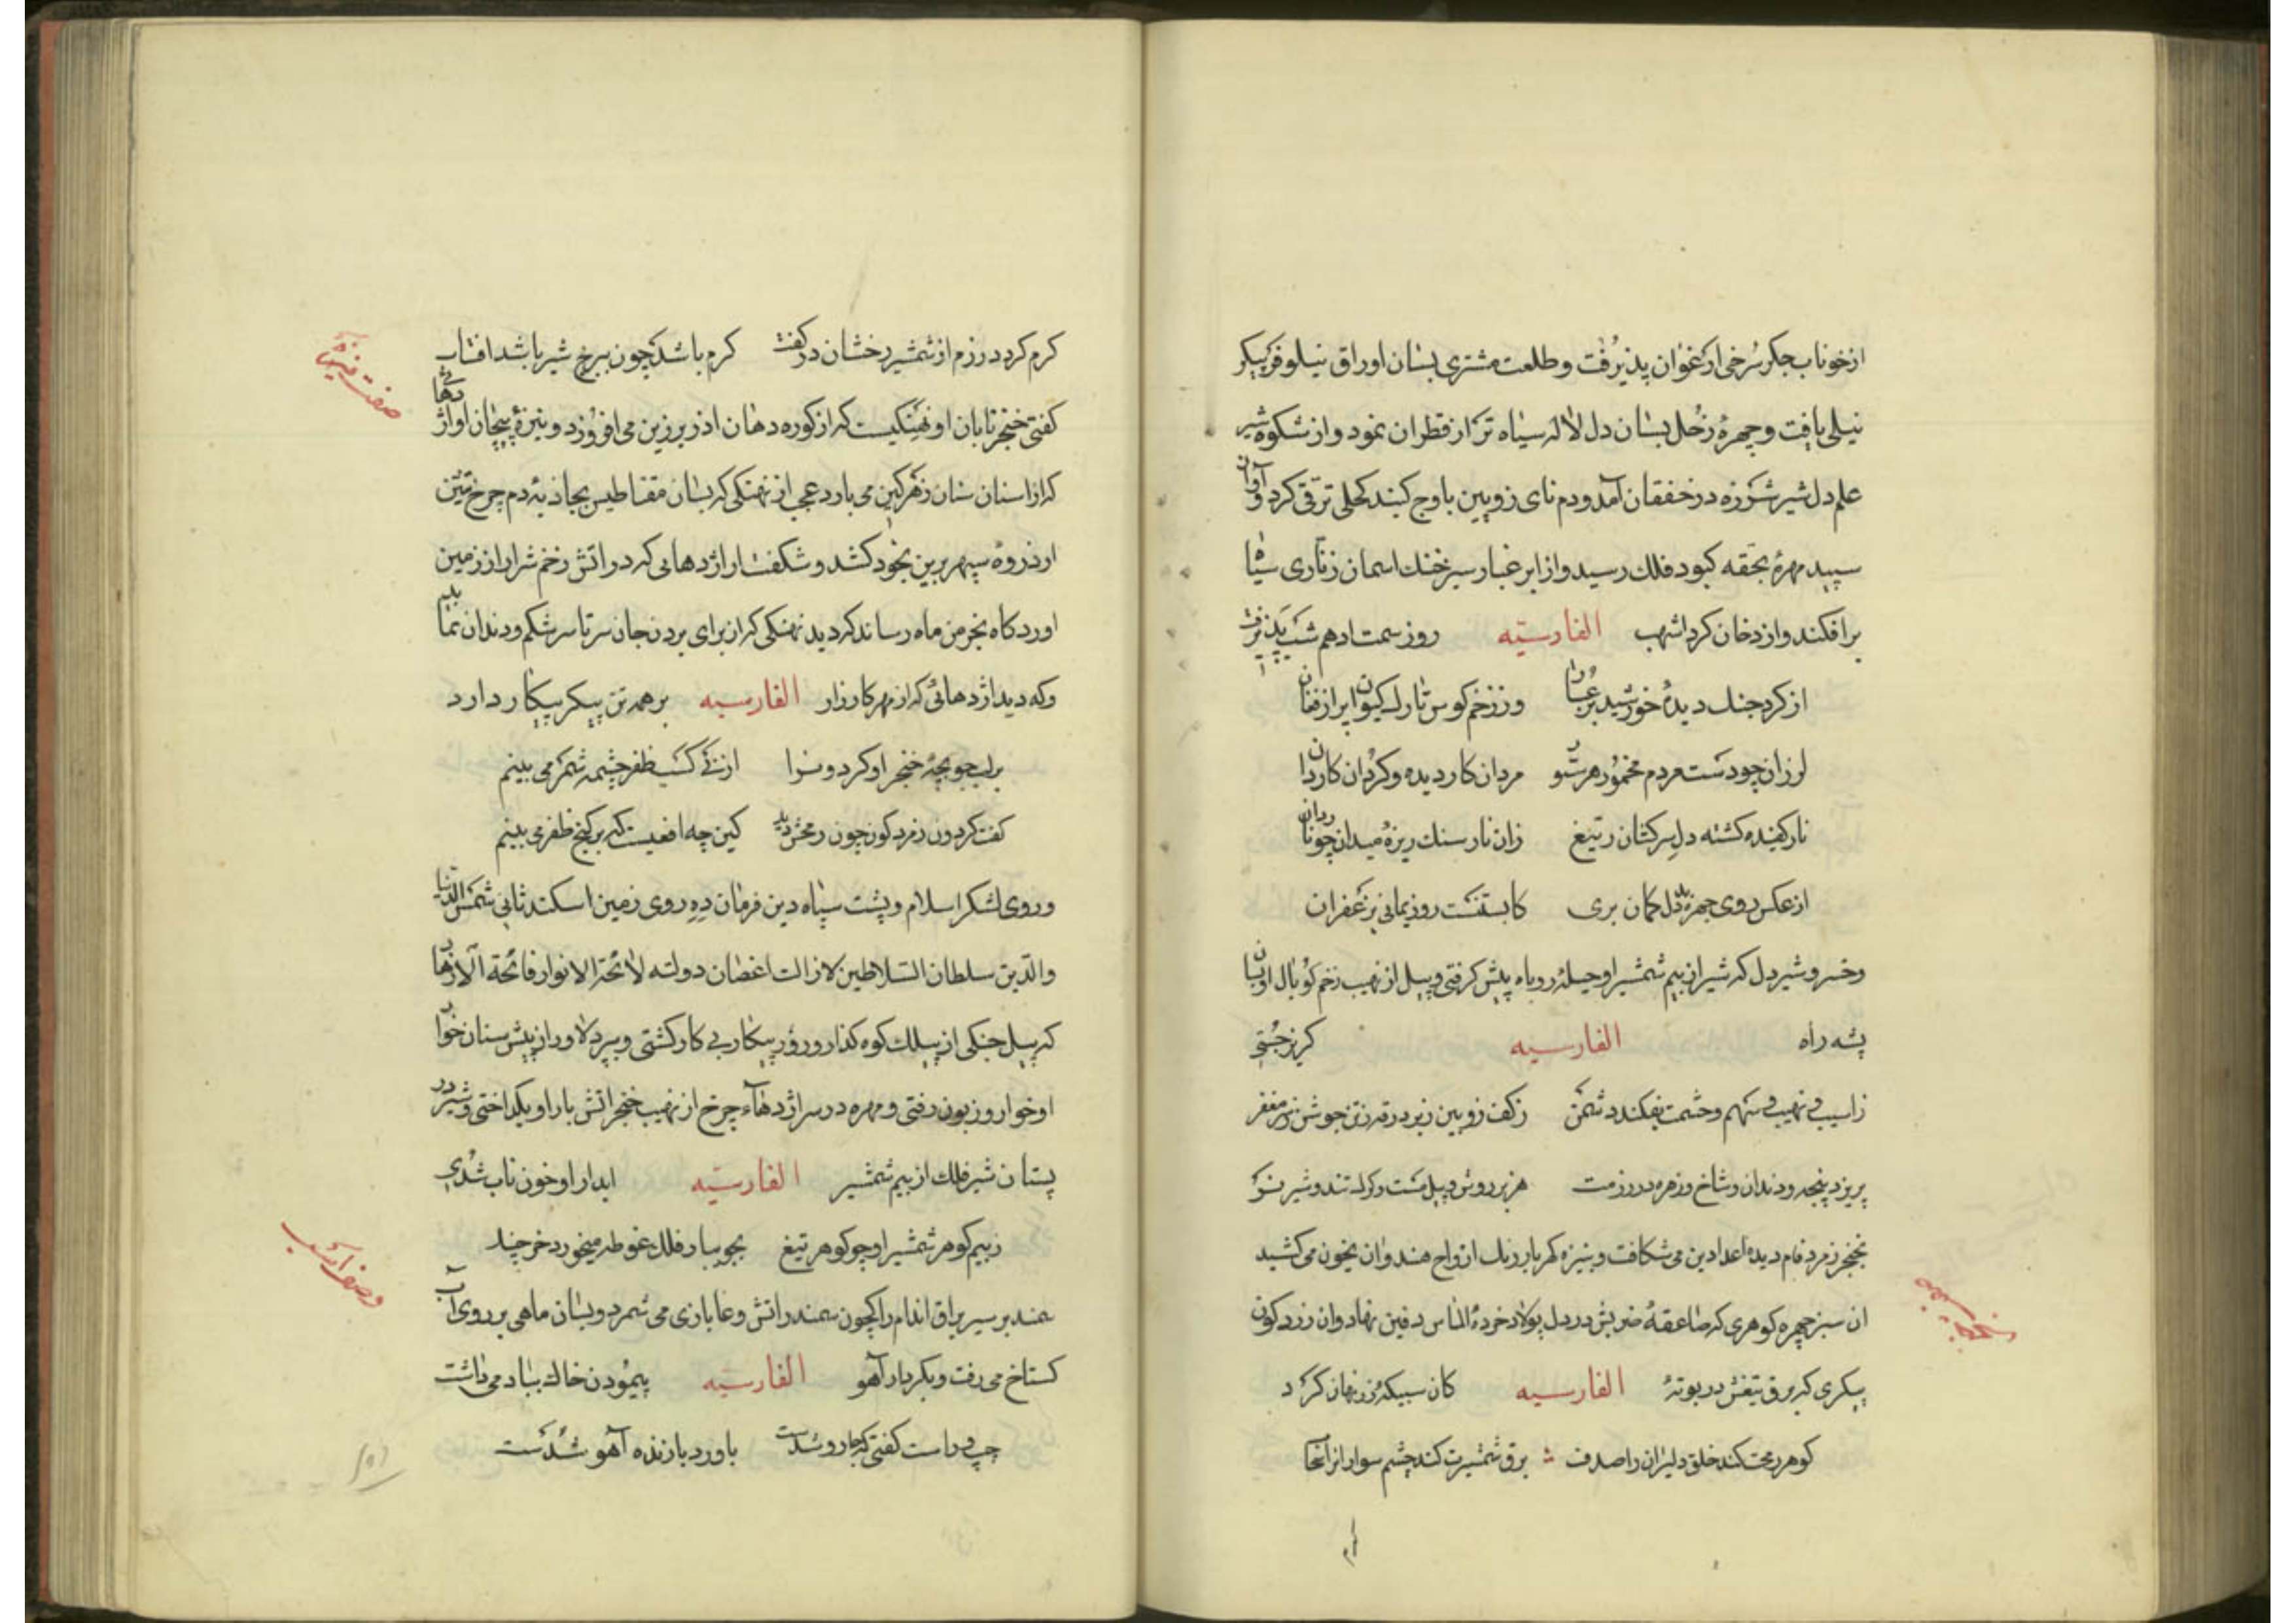 از خوناب جکر سُرخی ارغوان پذیرُفت و طلعت مشتری بسان اوراق نیلوفر پیکر
نیلی یافت و چهرهٔ زُحل بسان دل لاله سیاه تر از قطران نمود و از شکوه شیر
علم دل شیر شرزه در خفقان آمد و دم نای زویین باوج کنبد کحلی ترقی کرد و آوان
سپید مهرهٔ بحقه کبود فلک رسید و از ابر غبار سبز خنک اسمان زناری سیاه
برافکند و از دخان کرد اشهب الفارسیّه روز سمت ادهم شب پذیرفت
از کرد جنک دیدهٔ خورشید پر غبار وز زخم کوس تارک کیوان پر از فغان
لرزان چو دست مردم مخمور هر سو مردان کار دیده و کردان کاردان
نار کفیده کشته دل سرکشان ز تیغ زان نار سنک ریزهٔ میدان چو ناردان
از عکس روی چهرهٔ بد دل کمان بری کابستنست روز یمانی بزعفران
و خسرو شیر دل که شیر از بیم شمشیر او حیلهٔ روباه پیش کرفتی و پیل از نهیب زخم کوپال او بسان
پشه راه الفارسیه کریز جستی
ز اسیب و نهیب و سهم و حشمت بفکند دشمن ز کف زوبین ز بر درقه ز تن جوشن ز سر مغفر
بریزد پنجه و دندان و شاخ و زهره در رزمت هزبر روئین و پیل مست و کرک تند و شیر نر
بخنجر زمرد فام دیده اعدا دین می شکافت و بنیزه کهربا رنک ارواح هندوان بخون می کشید
ان سبز چهره کوهری که صاعقهٔ ضربش در دل پولاد خردهٔ الماس دفین نهاد و ان زرد کون
پیکری که برق تیغش در بوتهٔ الفارسیه کان سبیکهٔ زر نهان کرد
کوهر رمحت کند خلق دلیران را صدف برق شمشیرت کند چشم سواران را
کرم کردد رزم از شمشیر رخشان در کفت کرم باشد چون ببرج شیر باشد افتاب
صفت
کفتی خنجر تابان او نهنکیست که از کوره دهان اذر برزین می افروزد و نیزهٔ پیچان او اژدهائی
که از اسنان سنان زهر کین می بارد عجب از نهنکی که بسان مقناطیس بجاذبهٔ دم چرخ تنین
از ذروهٔ سپهر برین بخود کشد و شکفت از اژدهایی که در اتش زخم شرار از زمین
اورد کاه بخرمن ماه رساند که دید نهنکی که از برای بردن جان سر تا سر شکم و دندان نماید
و که دید اژدهائی که از بهر کارزار الفارسیه بر همه تن پیکر پیکار دارد
بر لب جویچهٔ خنجر او کرد و نوا از نئ کشت ظفر چشمهٔ شکر می بینم
کفت کردون زمرد کون چون رمحش دید کین چه افعیست که بر کنج ظفر می بینم
و روی لشکر اسلام و پشت سپاه دین فرمان ده روی زمین اسکندر ثانی شمس الدنیا
والدین سلطان السلاطین لازالت اغصان دولته لائحة الانوار فائحة الازهار
که پیل جنکی از پیلک کوه کذار او روز پیکار بی کار کشتی و ببر دلاور از پیش سنان خوار
او خوار و زبون رفتی و مهره در سر اژدهاء چرخ از نهیب خنجر اتش بار او بکداختی و شیر در
پستان شیر فلک از بیم شمشیر الفارسیّه ابدار او خون ناب شدی
ز بیم کوهر شمشیر او چو کوهر تیغ بجویبار فلک غوطه میخورد خرچنک
سمند بر سیر براق اندام را که چون سمندر اتش وغا بازی می شمرد و بسان ماهی بر روی آب
کستاخ می رفت و بکردار آهو الفارسیه پیمودن خاک بباد می داشت
چپ و راست کفتی که جادو شدست باورد بازنده آهو شدست